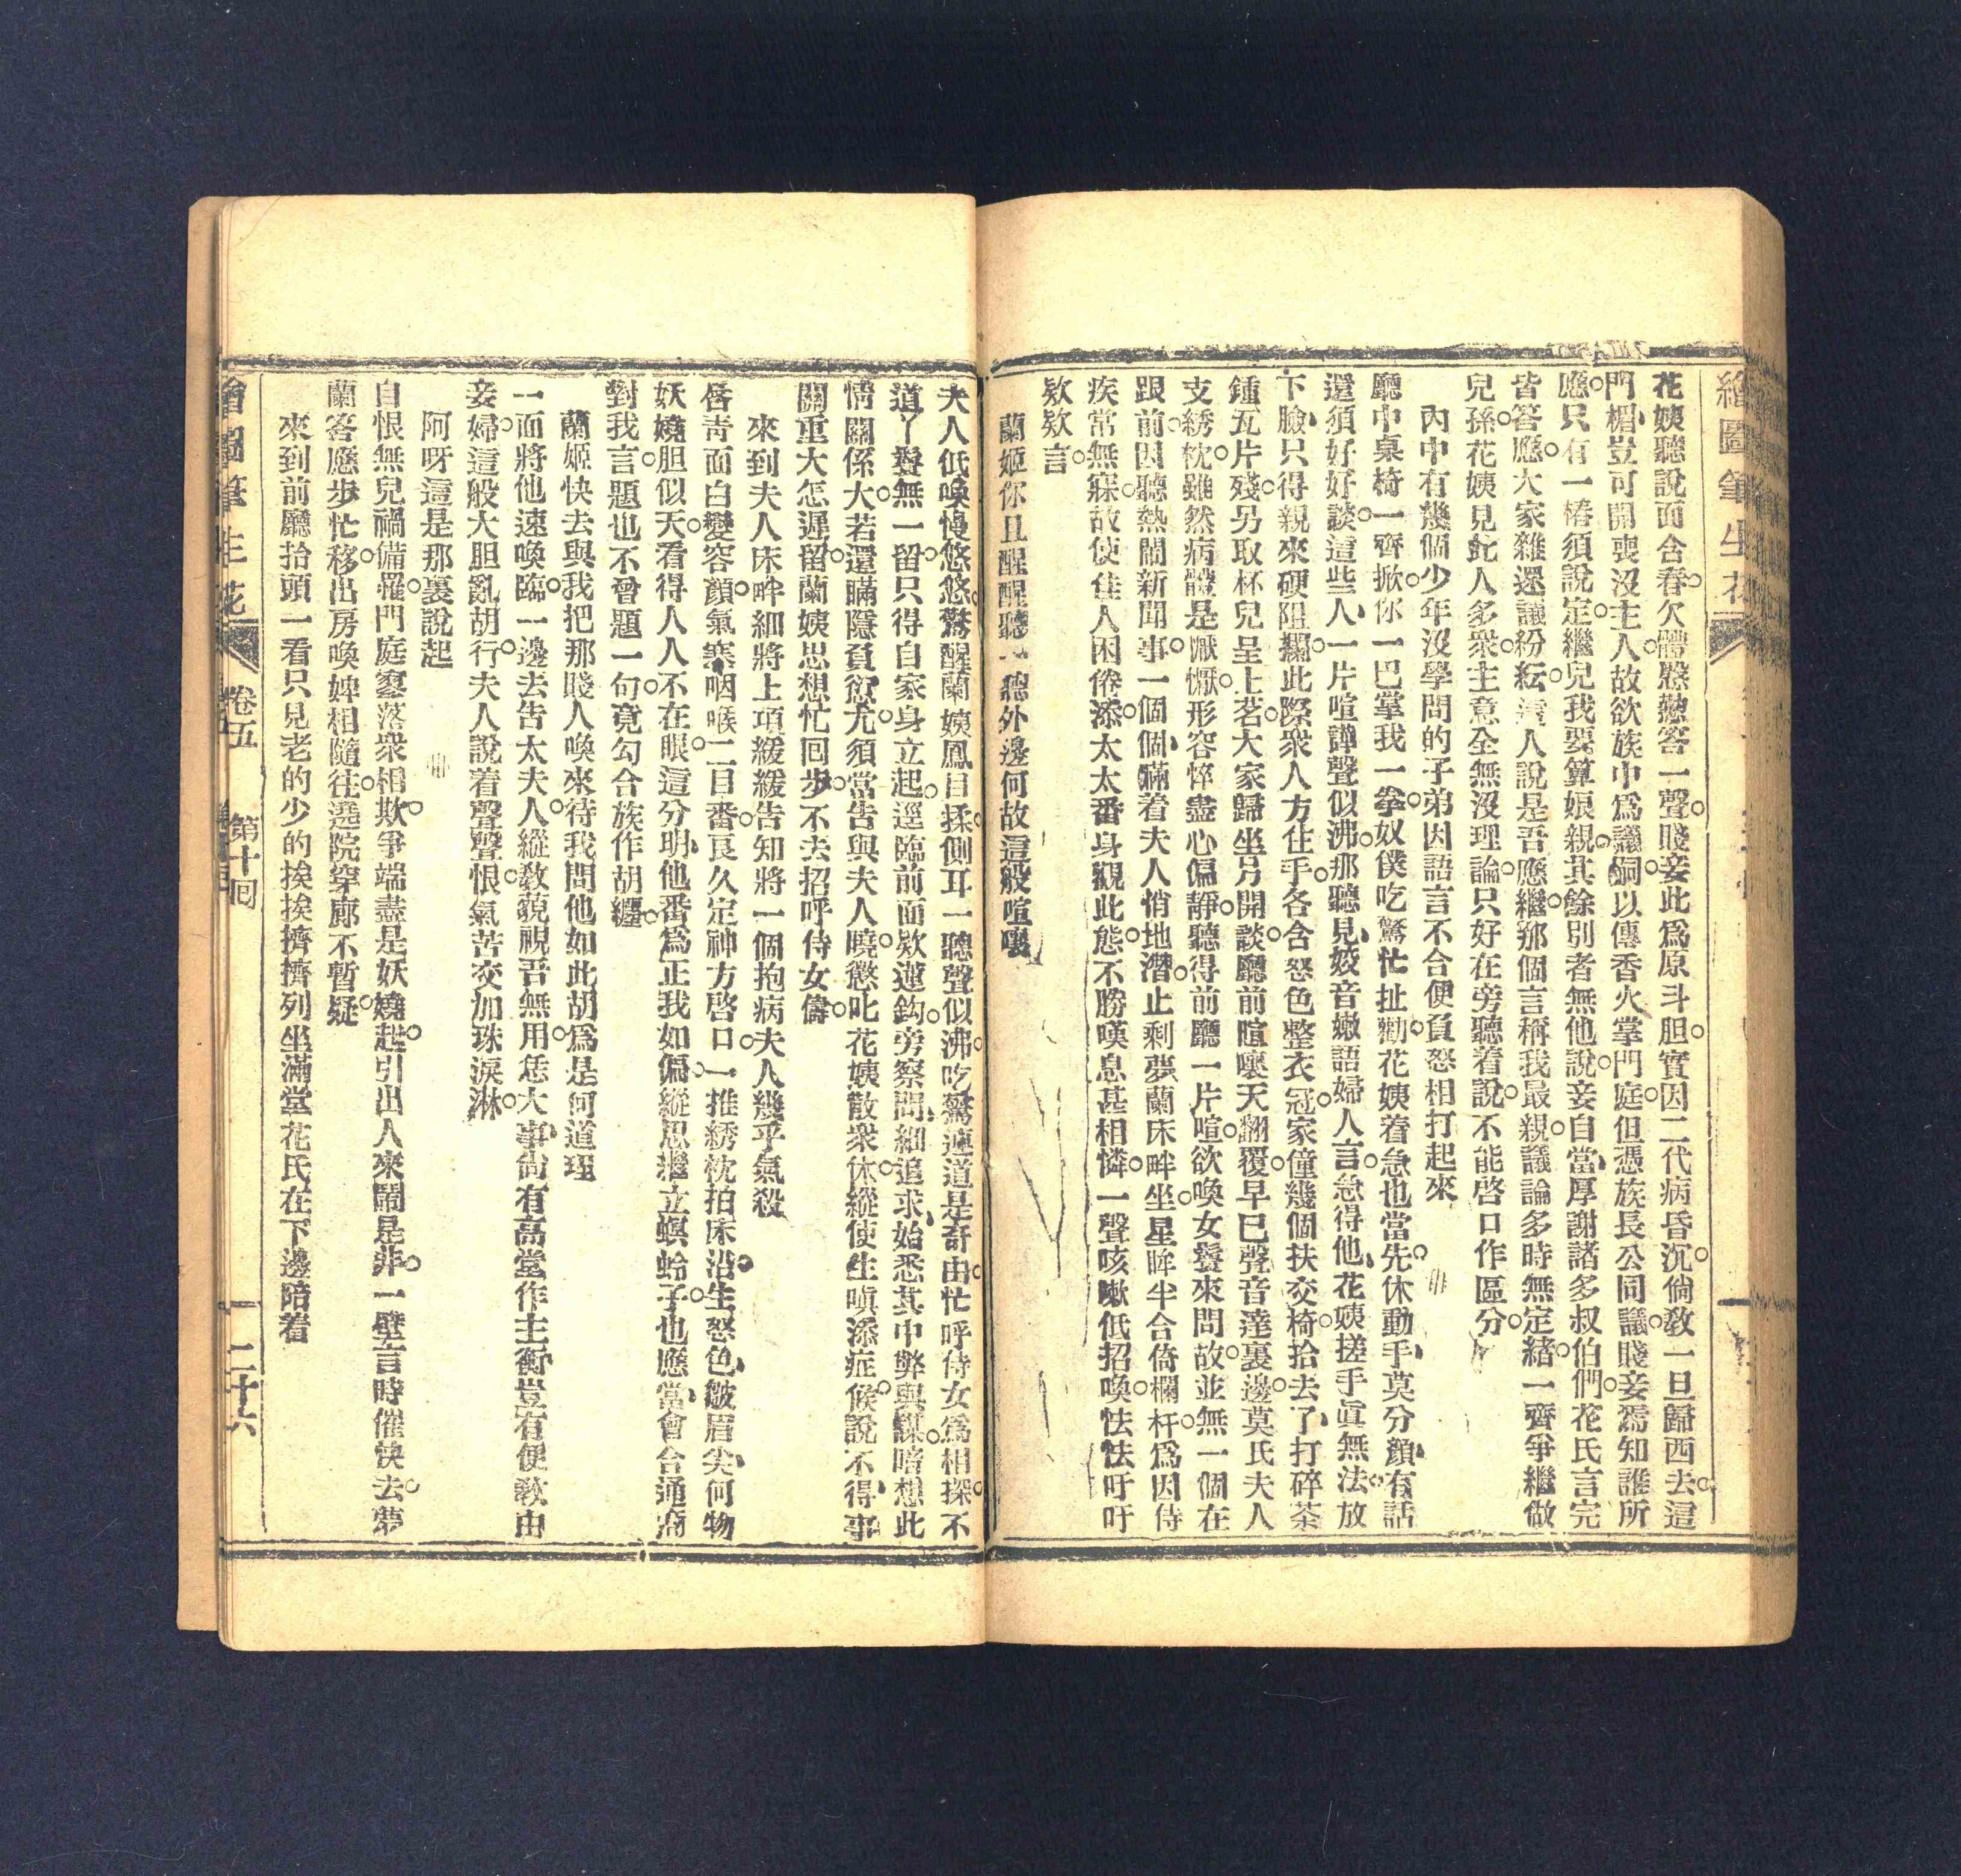 繪圖筆生花
花姨聽說面含春欠體慇懃答一聲賤妾此爲原斗胆實因二代病昏沉倘敎一旦歸西去這
門楣豈可開喪沒主人故欲族中爲議嗣以傳香火掌門庭但憑族長公同議賤妾焉知誰所
應只有一樁須說定繼兒我要算娘親其餘別者無他說妾自當厚謝諸多叔伯們花氏言完
皆答應大家雜遝議紛紜這人說是吾應繼那個言稱我最親議論多時無定緒一齊爭繼做
兒孫花姨見飢人多衆主意全無沒理論只好在旁聽着說不能啓口作區分
內中有幾個少年沒學問的子弟因語言不合便負怒相打起來
廳中桌椅一齊掀你一巴掌我一拳奴僕吃驚忙扯勸花姨着急也當先休動手莫分顏有話
還須好好談這些人一片喧譁聲似沸那聽見姣音嫩語婦人言急得他花姨搓手眞無法放
下臉只得親來硬阻攔此際衆人方住手各含怒色整衣冠家僮幾個扶交椅拾去了打碎茶
鍾瓦片殘另取杯兒呈上茗大家歸坐另開談廳前喧嚷天翻覆早已聲音達裏邊莫氏夫人
支綉枕雖然病體是懨懨形容悴盡心偏靜聽得前廳一片喧欲喚女鬟來問故並無一個在
跟前因聽熱鬧新聞事一個個瞞着夫人悄地潛止剩夢蘭床畔坐星眸半合倚欄杆爲因侍
疾常無寐故使佳人困倦添太太番身觀此態不勝嘆息甚相憐一聲咳嗽低招喚怯怯吁吁
欵欵言
蘭姬你且醒醒聽一聽外邊何故這般喧嚷
夫人低喚慢悠悠驚醒蘭姨鳳目揉側耳一聽聲似沸吃驚連道是奇由忙呼侍女爲相探不
道丫鬟無一留只得自家身立起逕臨前面欵蓮鈎旁察問細追求始悉其中弊與謀暗想此
情關係大若還瞞隱負愆尤須當告與夫人曉懲叱花姨散衆休縱使生嗔添症候說不得事
關重大怎遲留蘭姨思想忙回步不去招呼侍女儔
來到夫人床畔細將上項緩緩告知將一個抱病夫人幾乎氣殺
唇靑面白變容顏氣塞咽喉二目番良久定神方啓口一推綉枕拍床沿生怒色皺眉尖何物
妖嬈胆似天看得人人不在眼這分明他番爲正我如偏縱思繼立螟蛉子也應當會合通商
對我言題也不曾題一句竟勾合族作胡纏
蘭姬快去與我把那賤人喚來待我問他如此胡爲是何道理
一面將他速喚臨一邊去告太夫人縱敎藐視吾無用恁大事尙有高堂作主衡豈有便敎由
妾婦這般大胆亂胡行夫人說着聲聲恨氣苦交加珠淚淋
阿呀這是那裏說起
自恨無兒禍備罹門庭寥落衆相欺爭端盡是妖嬈起引出人來鬧是非一壁言時催快去夢
蘭答應步忙移出房喚婢相隨往遶院穿廊不暫疑
來到前廳抬頭一看只見老的少的挨挨擠擠列坐滿堂花氏在下邊陪着
繪圖筆生花
卷五
第十回
二十六